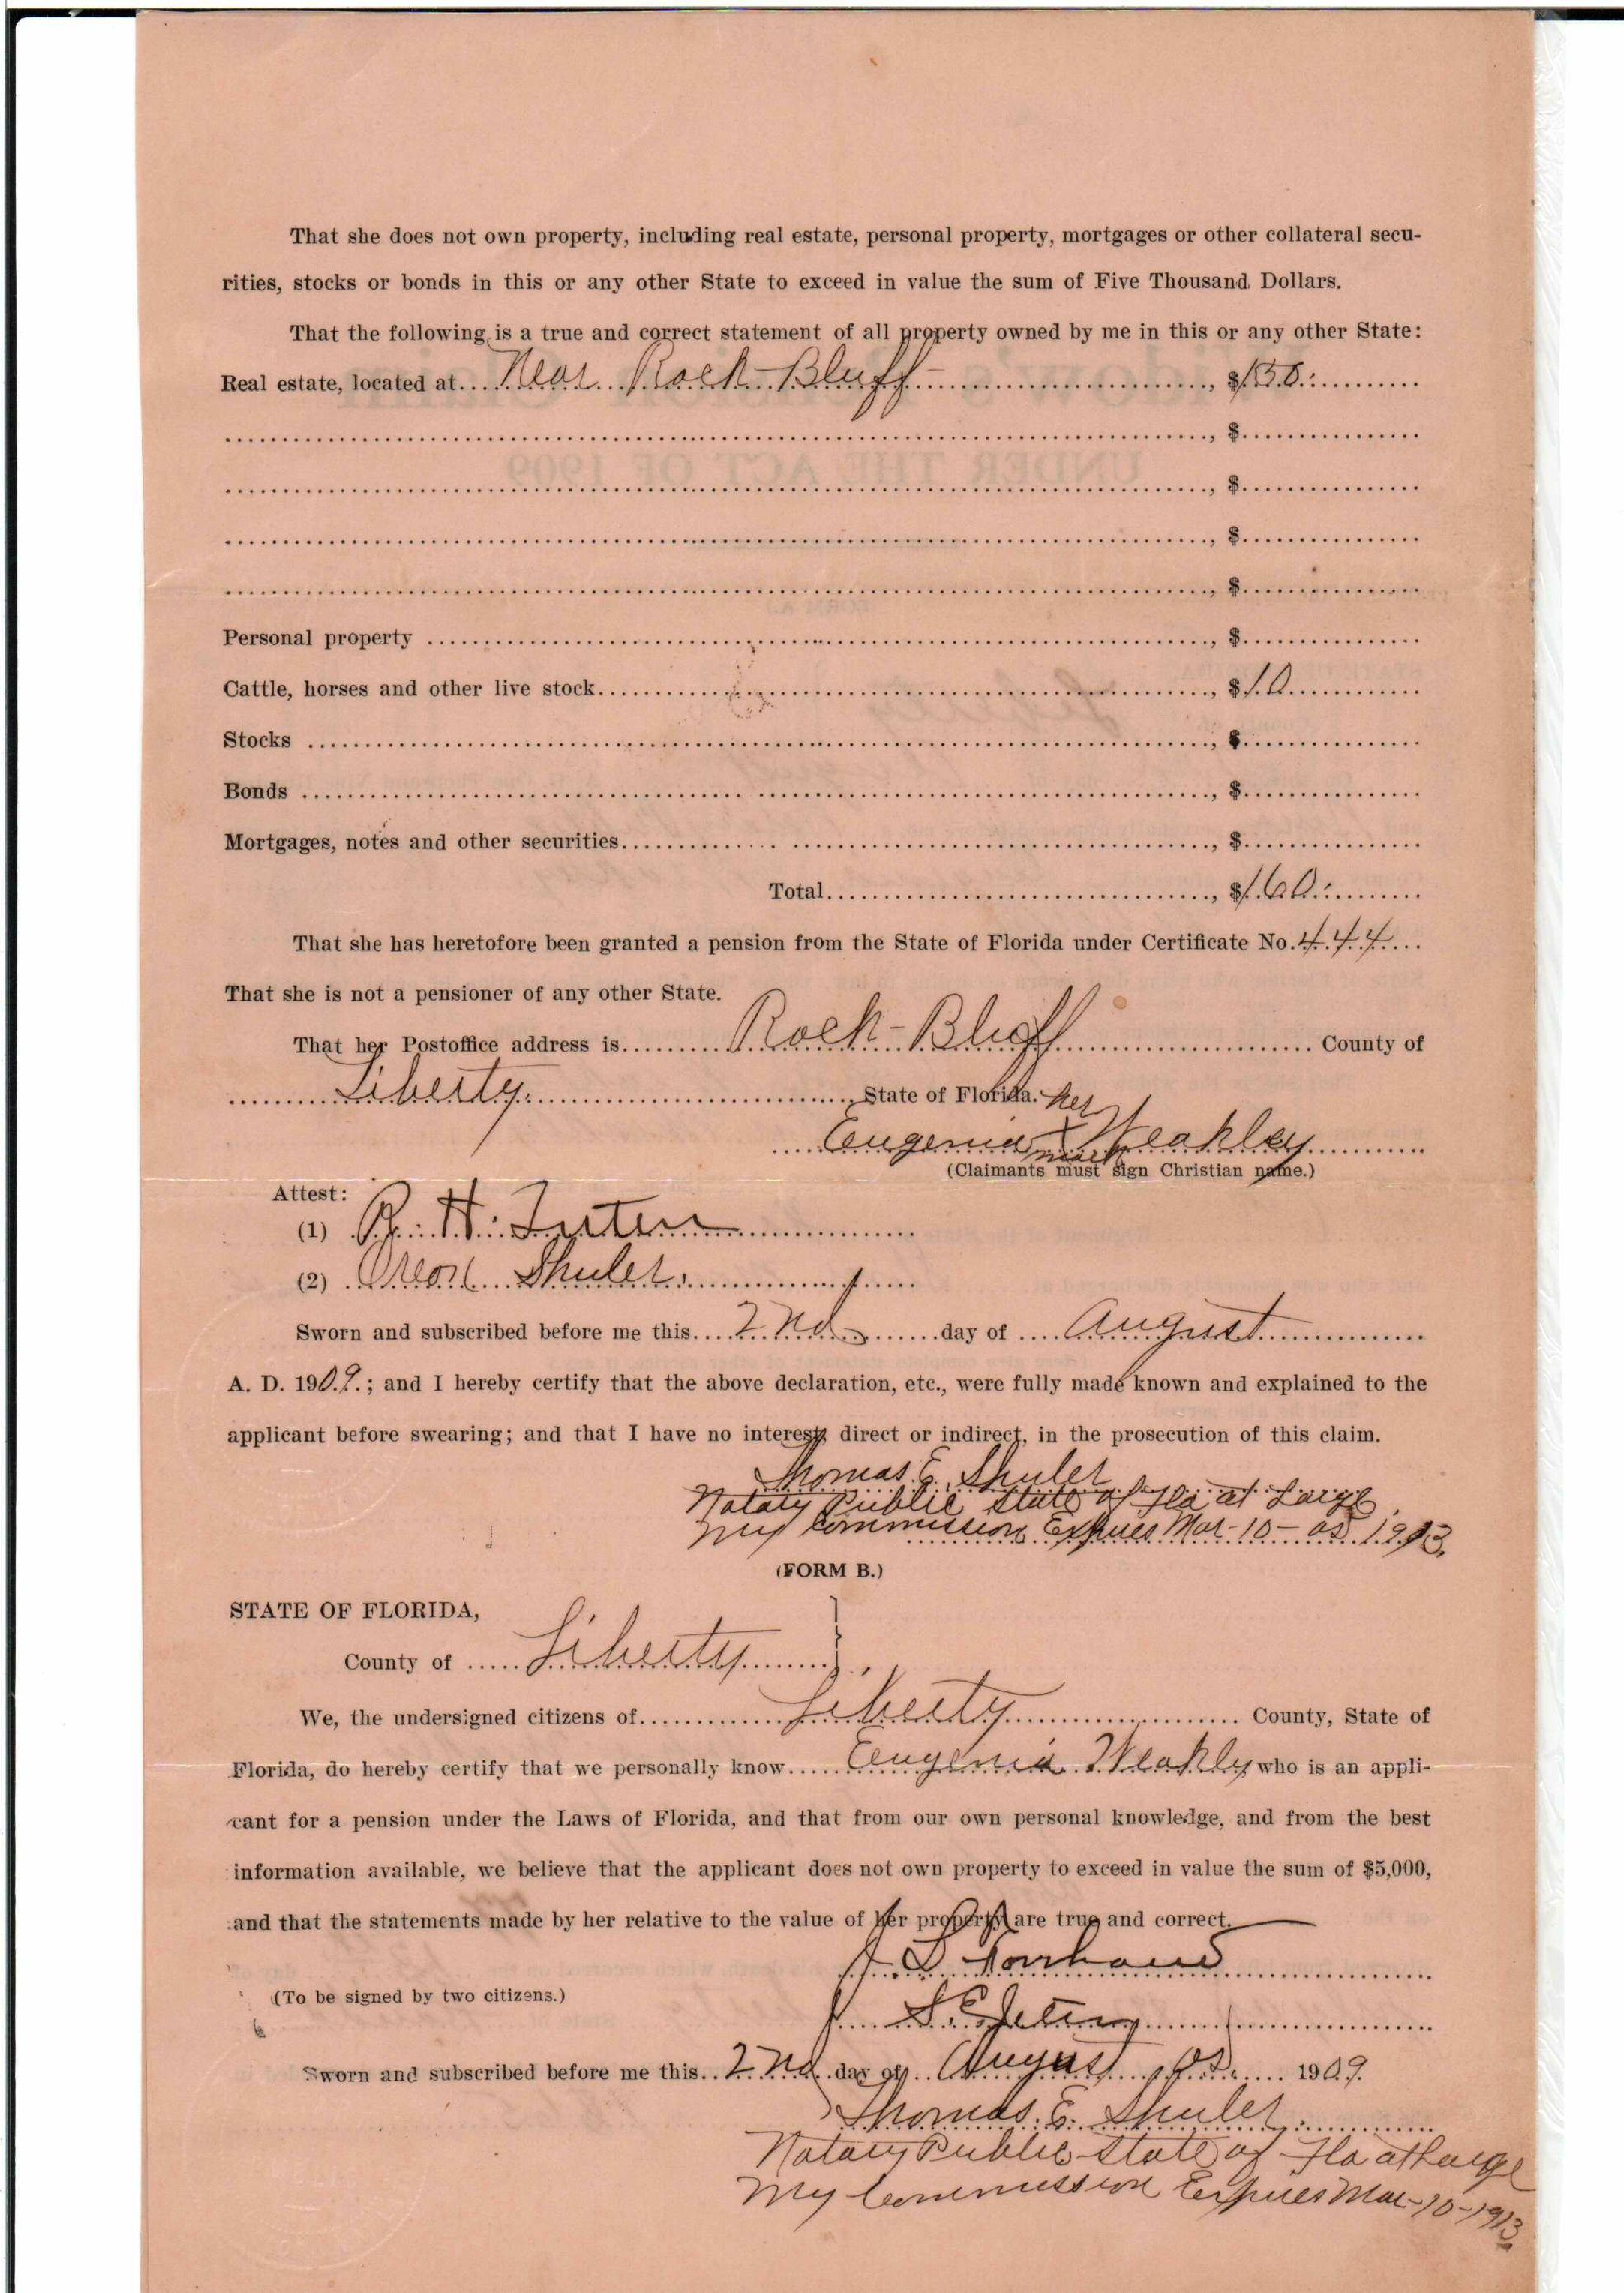 That she does not own property, including real estate, personal property, mortgages or other collateral secu-
rities, stocks or bonds in this or any other State to exceed in value the sum of Five Thousand Dollars.
That the following is a true and correct statement of all property owned by me in this or any other State:
Real estate, located at....Near Rock-Bluff............, $150............
............, $............
............, $............
............, $............
............, $............
Personal property ............, $............
Cattle, horses and other live stock............, $10............
Stocks ............, $............
Bonds ............, $............
Mortgages, notes and other securities............, $............
Total............, $160............
That she has heretofore been granted a pension from the State of Florida under Certificate No. 444...
That she is not a pensioner of any other State.
That her Postoffice address is..........Rock-Bluff............ County of
............Liberty............, State of Florida.
her
Eugenia X Weakley
mark
(Claimants must sign Christian name.)
Attest:
(1) R. H.
(2) Shuler
Sworn and subscribed before me this....2nd........day of ....August............
A. D. 1909.; and I hereby certify that the above declaration, etc., were fully made known and explained to the
applicant before swearing; and that I have no interest, direct or indirect, in the prosecution of this claim.
Thomas E. Shuler
Notary Public State of Fla at Large
My Commission Expires Mar-10- 1913.
(FORM B.)
STATE OF FLORIDA,
County of .....Liberty............
We, the undersigned citizens of............Liberty............ County, State of
Florida, do hereby certify that we personally know.....Eugenia Weakley who is an appli-
cant for a pension under the Laws of Florida, and that from our own personal knowledge, and from the best
information available, we believe that the applicant does not own property to exceed in value the sum of $5,000,
and that the statements made by her relative to the value of her property are true and correct.
(To be signed by two citizens.)
Sworn and subscribed before me this..2nd..day of..August............ 1909.
Thomas. E. Shuler
Notary Public State of Fla at Large
My Commission Expires Mar-10-1913